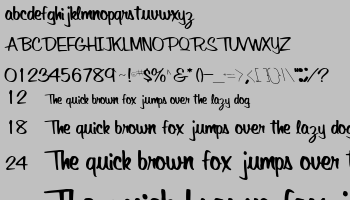 abcdefghijklmnopqrstuvwxyz
ABCDEFGHIJKLMNOPQRSTUVWXYZ
0123456789
12 The quick brown fox jumps over the lazy dog
18 The quick brown fox jumps over the lazy dog
24 The quick brown fox jumps over